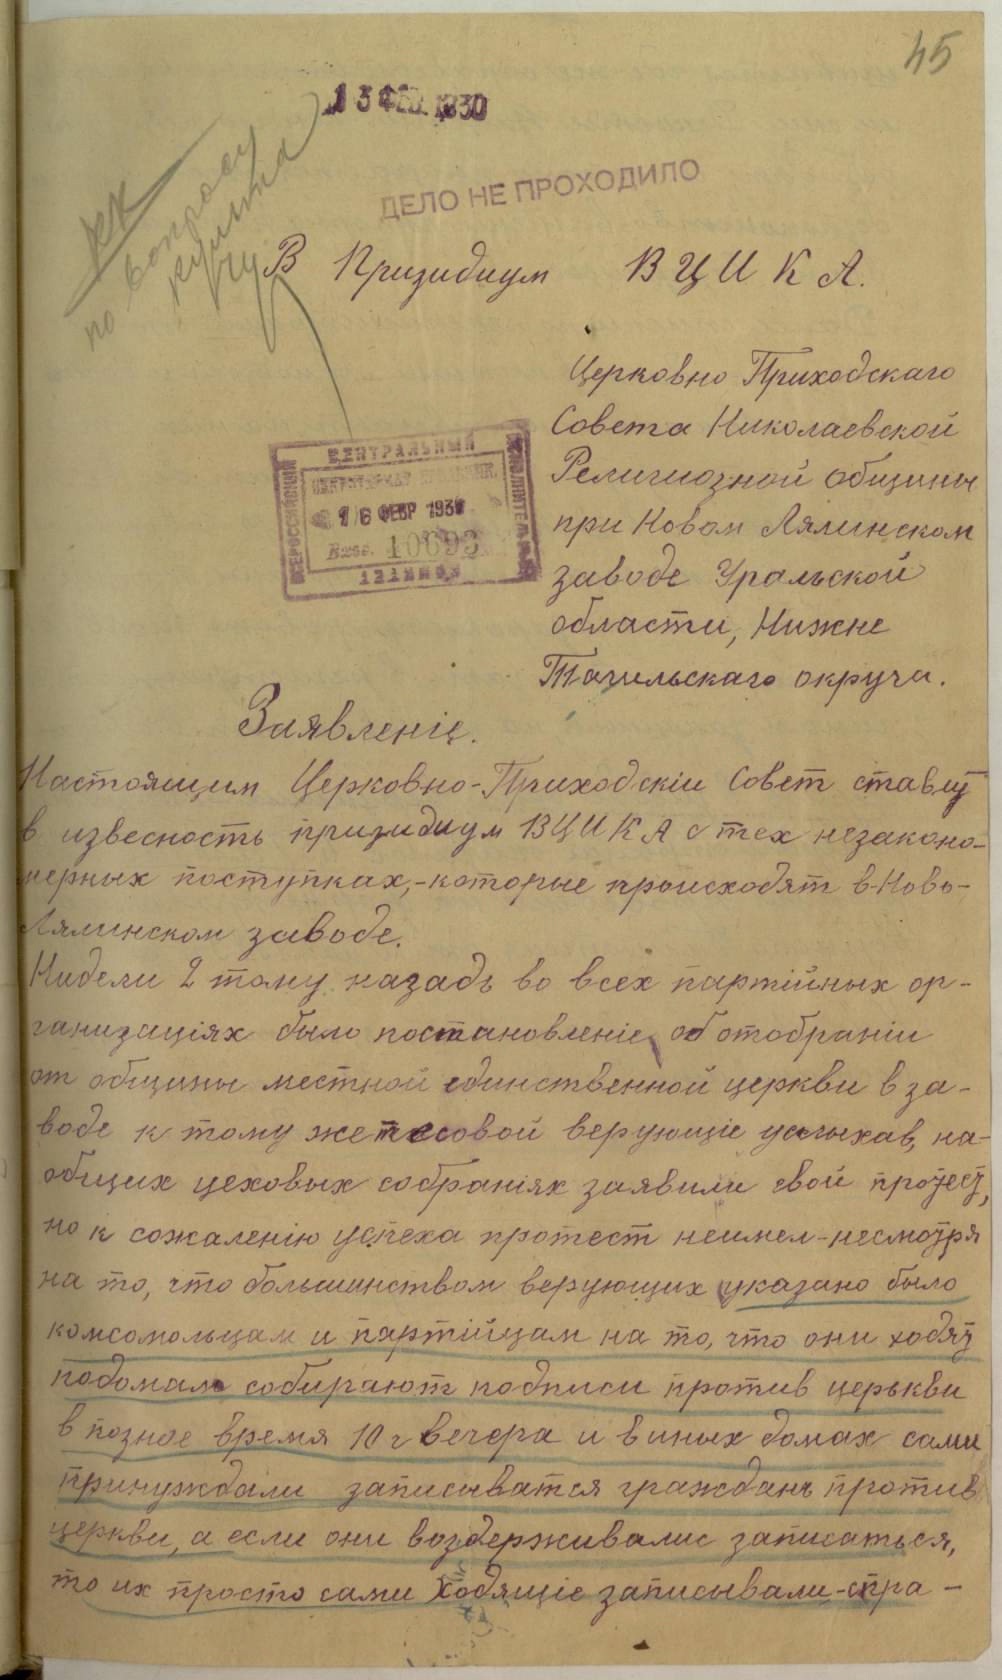 45
13 ФЕВ. 1930
ДЕЛО НЕ ПРОХОДИЛО
по вопросу
культа
В Призидиум ВЦИКА.
Церковно Приходскаго
Совета Николаевской
Религиозной общины
при Новом Лялинском
заводе Уральской
области, Нижне
Тагильскаго округа.
ВСЕРОССИЙСКИЙ
ЦЕНТРАЛЬНЫЙ
ИСПОЛНИТЕЛЬН.
16 ФЕВР 193
Вход. 10693
КОМИТЕТ
Заявленіе.
Настоящим Церковно-Приходскіи Совет ставит
в извесность призидиум ВЦИКА о тех незаконо-
мерных поступках,-которые происходят в-Ново-
Лялинском заводе.
Нидели 2 тому назадь во всех партійных ор-
ганизаціях было постановленіе об отобраніи
от общины местной единственной церкви в за-
воде к тому же тесовой верующіе услыхав, на-
общих цеховых собраніях заявили свой протест,
но к сожаленію успеха протест неимел-несмотря
на то, что большинством верующих указано было
комсомольцам и партійцам на то, что они ходят
подомам собирают подписи против церькви
в позное время 10 г вечера и в иных домах сами
принуждали записыватся гражданъ против
церкви, а если они воздерживалис записаться,
то их просто сами ходящіе записывали-спра-